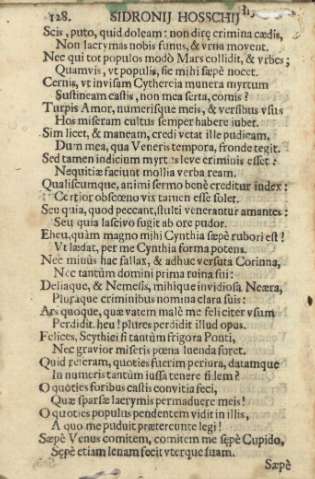 128. SIDRONIJ HOSSCHIJ
Scis, puto, quid doleam: non diræ crimina cædis,
Non lacrymas nobis funus, & vrna movent.
Nec qui tot populos modò Mars collidit, & vrbes;
Quamvis, vt populis, sic mihi sæpè nocet.
Cernis, vt invisam Cythereia munera myrtum
Sustineam castis, non mea serta, comis?
Turpis Amor, numerisque meis, & versibus vsus
Hos miseram cultus semper habere iubet.
Sim licet, & maneam, credi vetat ille pudicam,
Dum mea, qua Veneris tempora, fronde tegit.
Sed tamen indicium myrtus leve criminis esset:
Nequitiæ faciunt mollia verba ream.
Qualiscumque, animi sermo benè creditur index:
Certior obscœno vix tamen esse solet.
Seu quia, quod peccant, stulti venerantur amantes:
Seu quia lascivo fugit ab ore pudor.
Eheu, quàm magno mihi Cynthia sæpè rubori est!
Vt lædat, per me Cynthia forma potens.
Nec minùs hac fallax, & adhuc versuta Corinna,
Nec tantùm domini prima ruina sui:
Deliaque, & Nemesis, mihique invidiosa Neæra,
Pluraque criminibus nomina clara suis:
Ars quoque, quæ vatem malè me feliciter vsum
Perdidit. heu! plures perdidit illud opus.
Felices, Scythiei si tantùm frigora Ponti,
Nec gravior miseris pœna luenda foret.
Quid referam, quoties fuerim periura, datamque
In numeris tantùm iussa tenere fidem?
O quoties foribus castis convitia feci,
Quæ sparsæ lacrymis permaduere meis!
O quoties populus pendentem vidit in illis,
A quo me puduit prætereunte legi!
Sæpè Venus comitem, comitem me sępè Cupido,
Sępè etiam lenam fecit vterque suam.
Sæpè